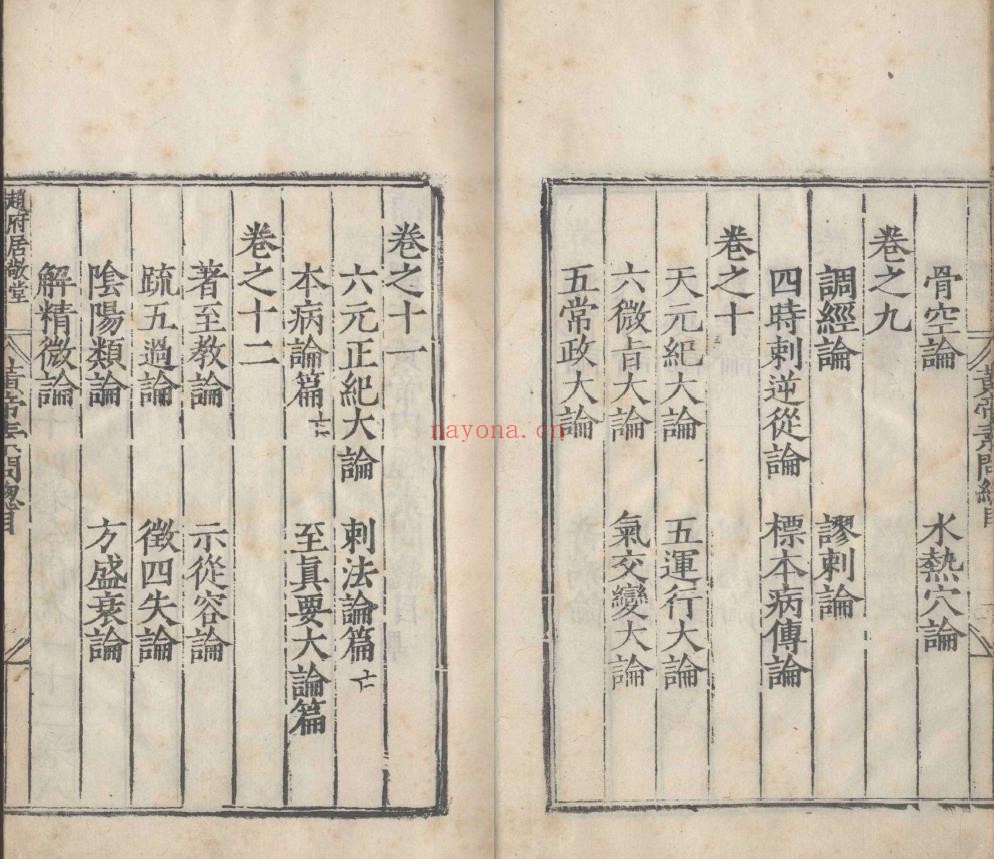 黃帝素問總目
骨空論 水熱穴論
卷之九
調經論 謬刺論
四時刺逆從論 標本病傳論
卷之十
天元紀大論 五運行大論
六微㫖大論 氣交變大論
五常政大論
卷之十一
六元正紀大論 刺法論篇亡
本病論篇亡 至真要大論篇
卷之十二
著至教論 示從容論
疏五過論 徵四失論
陰陽類論 方盛衰論
解精微論
趙府居敬堂 黃帝素問總目
nayona.cn